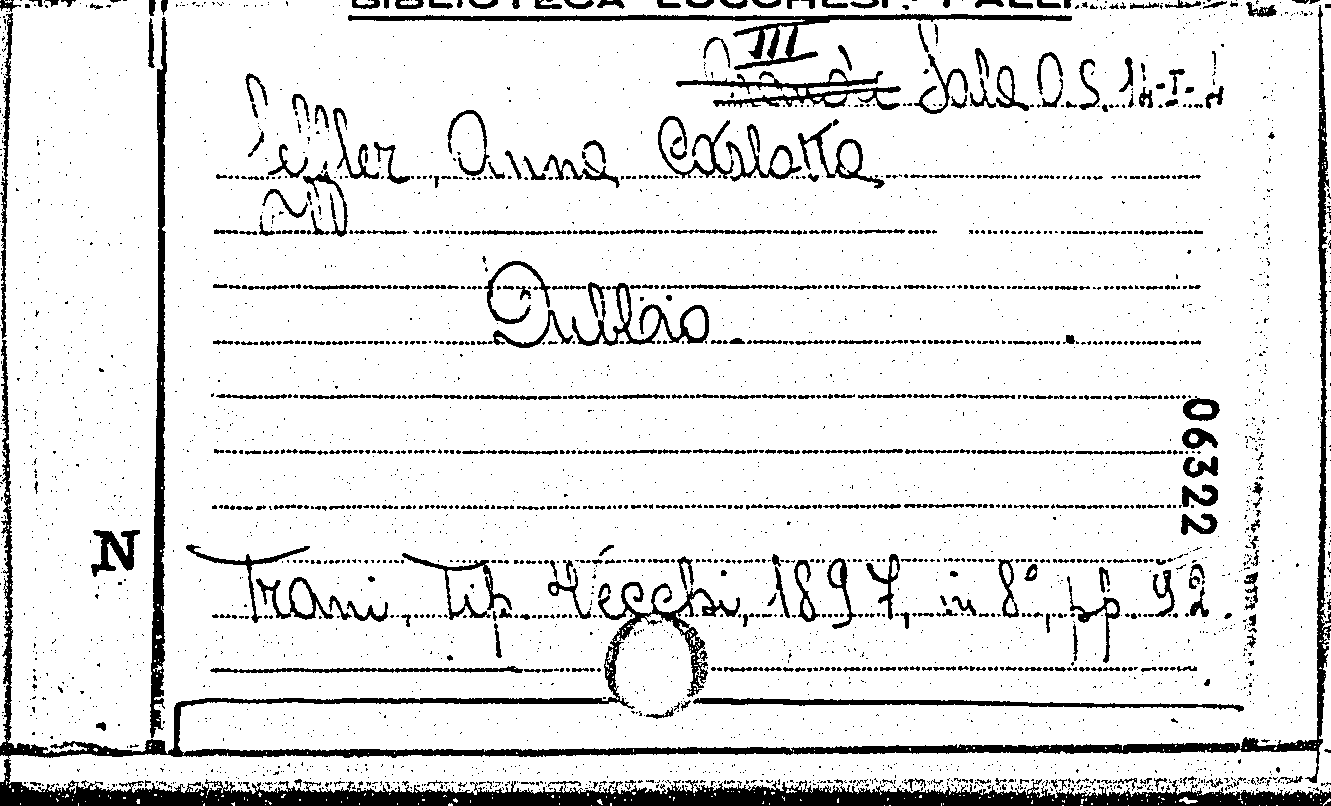 BIBLIOTECA LUCCHESI-PALLI
III
Sala O.S. 14-I-4
Leffler, Anna Carlotta
Dubbio.
06322
N
Trani, Tip. Vecchi, 1897, in 8°, pp. 92.